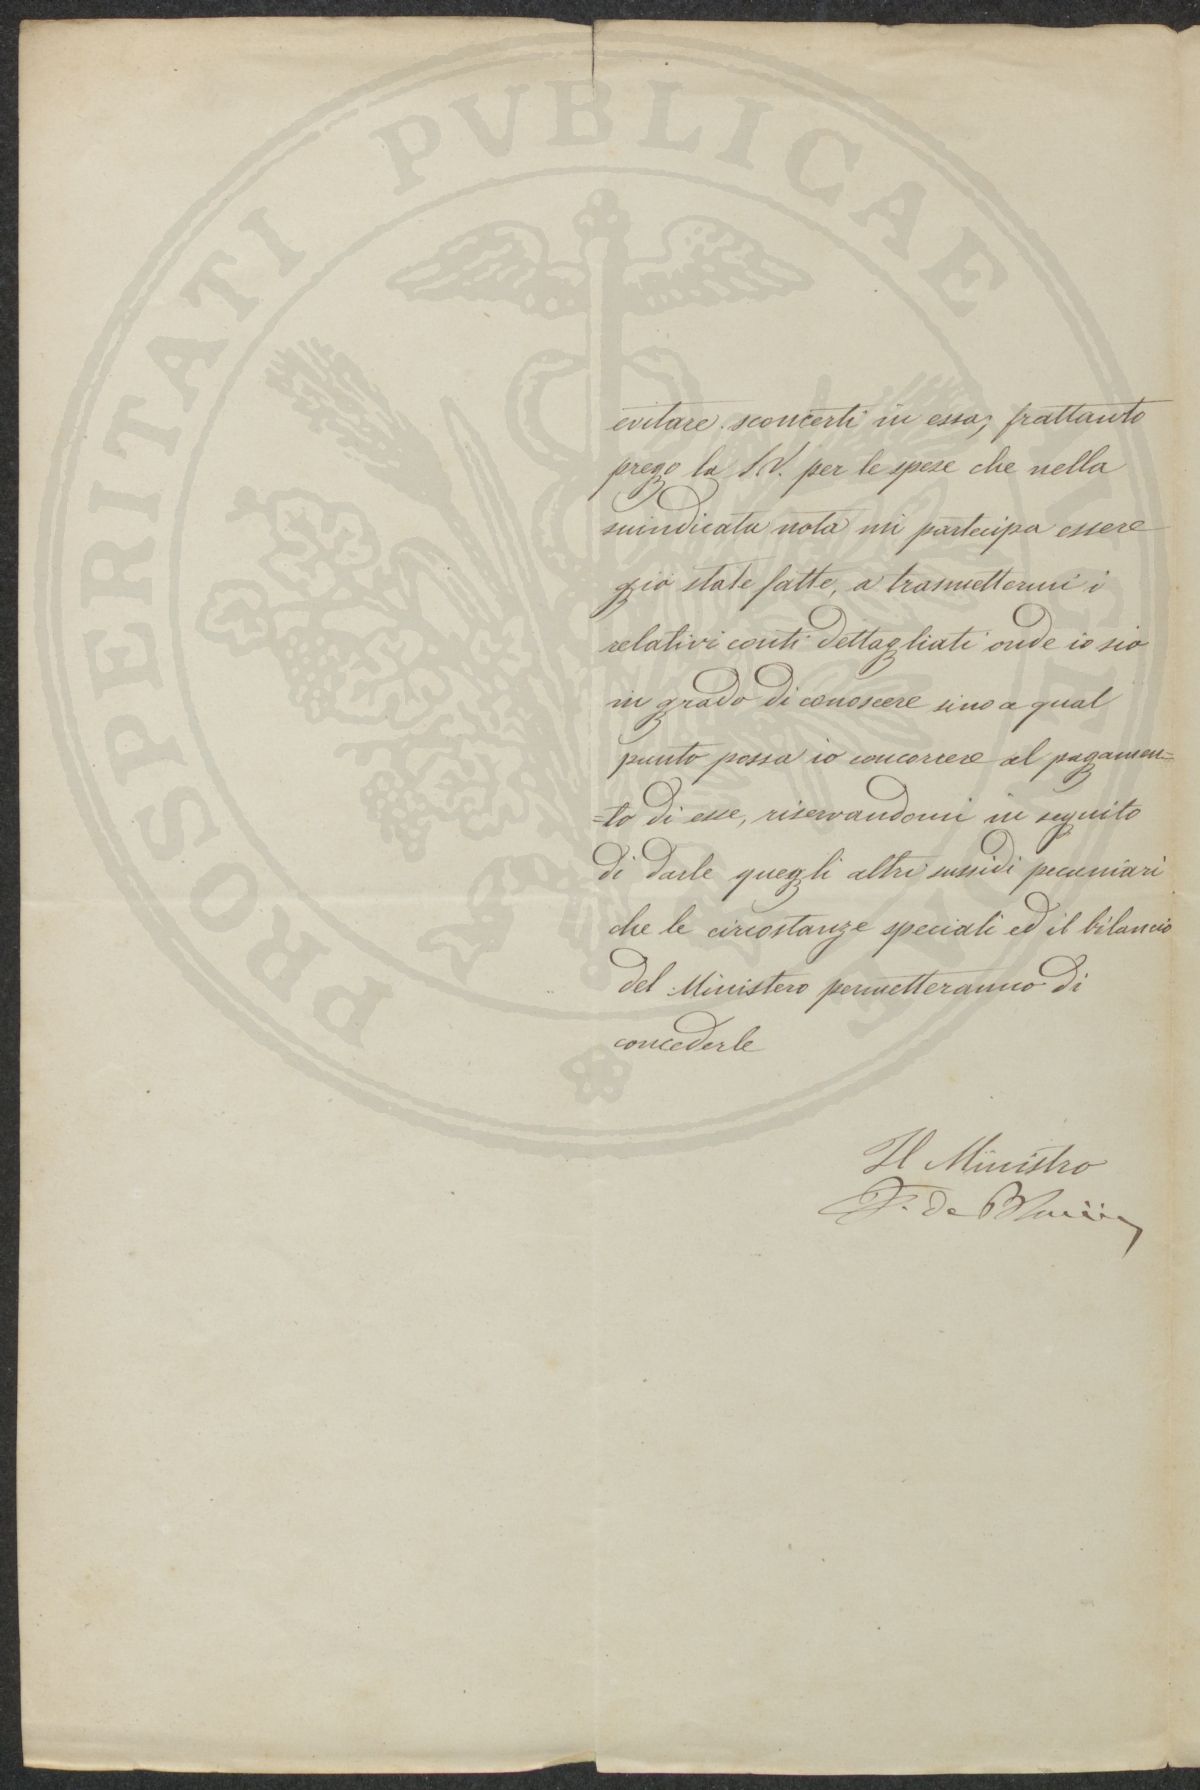 PROSPERITATI PVBLICAE
evitare sconcerti in essa; frattanto
prego la S.V. per le spese che nella
suindicata nota mi partecipa essere
già state fatte, a trasmettermi i
relativi conti dettagliati onde io sia
in grado di conoscere sino a qual
punto possa io concorrere al pagamen=
=to di esse, riservandomi in seguito
di darle quegli altri sussidi pecuniari
che le circostanze speciali ed il bilancio
del Ministero permetteranno di
concederle
Il Ministro
F. de Blasiis